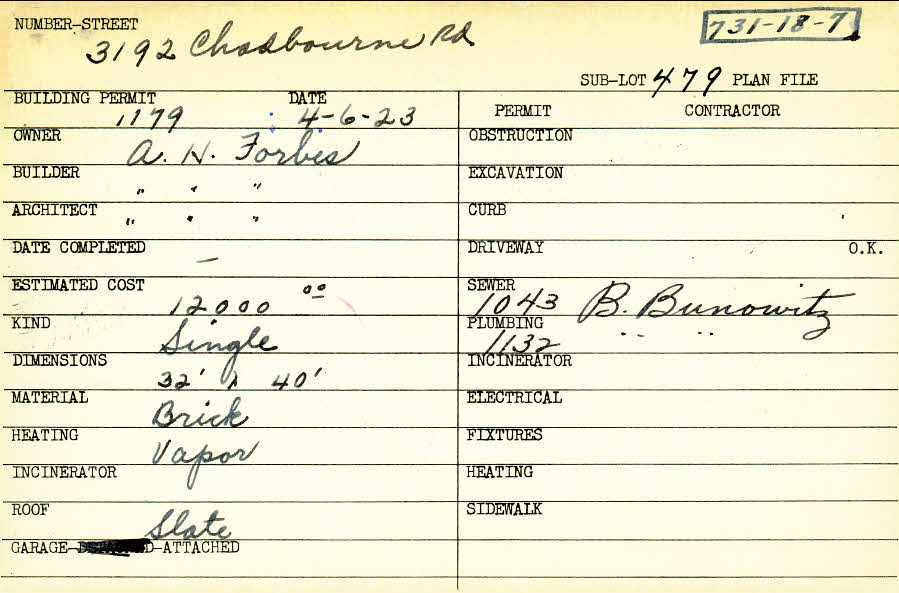 NUMBER-STREET
3192 Chadbourne Rd
731-18-7
SUB-LOT 479 PLAN FILE
BUILDING PERMIT DATE
1179 4-6-23
PERMIT CONTRACTOR
OWNER
A. H. Forbes
OBSTRUCTION
BUILDER
" " "
EXCAVATION
ARCHITECT
" " "
CURB
DATE COMPLETED
—
DRIVEWAY O.K.
ESTIMATED COST
12000 00
SEWER
1043 B. Bunowitz
KIND
Single
PLUMBING
1132 " "
DIMENSIONS
32' x 40'
INCINERATOR
MATERIAL
Brick
ELECTRICAL
HEATING
Vapor
FIXTURES
INCINERATOR
HEATING
ROOF
Slate
SIDEWALK
GARAGE-ATTACHED